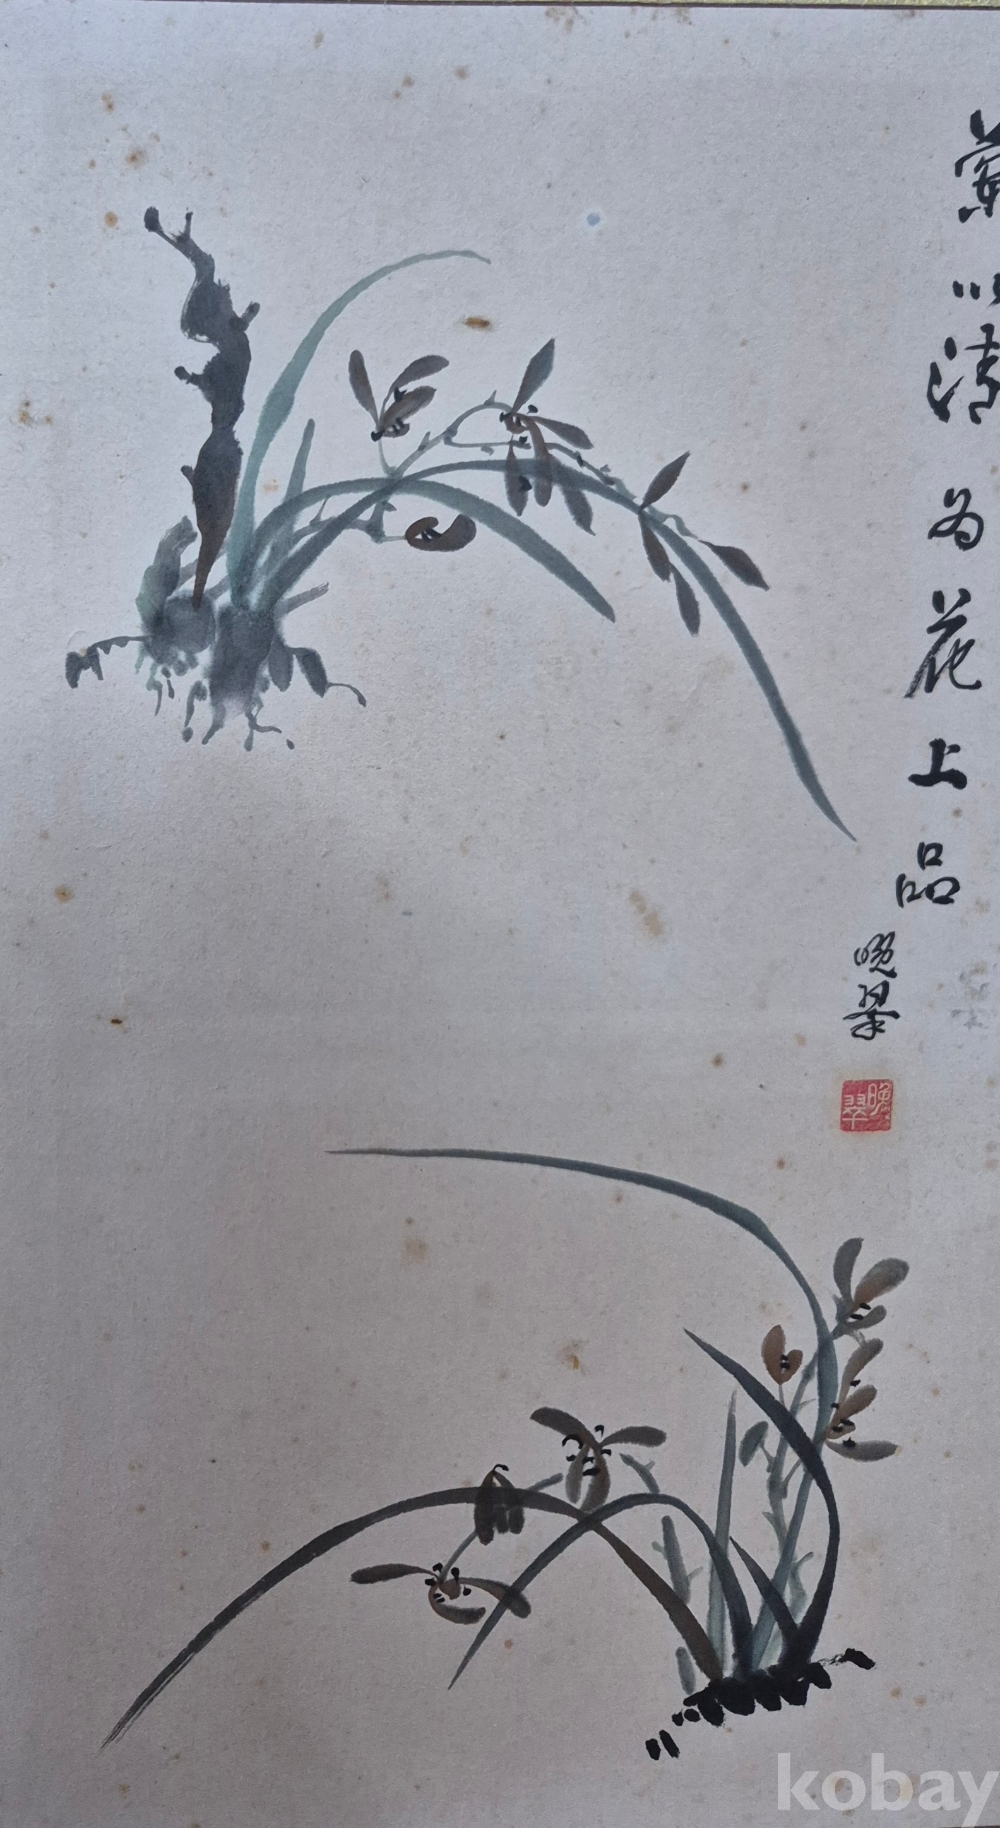 蘭以清為花上品
晚翠
晚翠
kobay